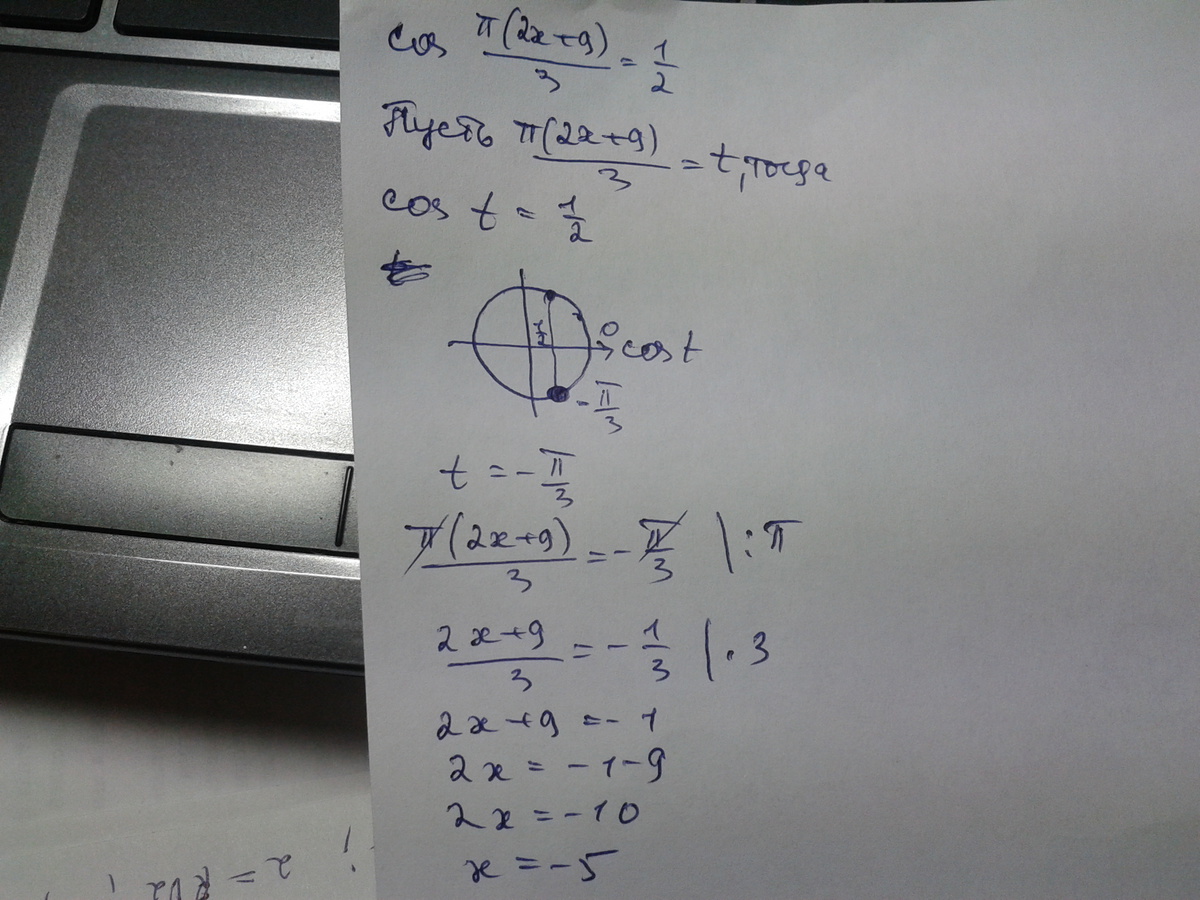 cos π(2x+9)/3 = 1/2
Пусть π(2x+9)/3 = t, тогда
cos t = 1/2
1/2 0 cos t
-π/3
t = -π/3
π(2x+9)/3 = -π/3 |:π
2x+9/3 = -1/3 |·3
2x+9 = -1
2x = -1-9
2x = -10
x = -5